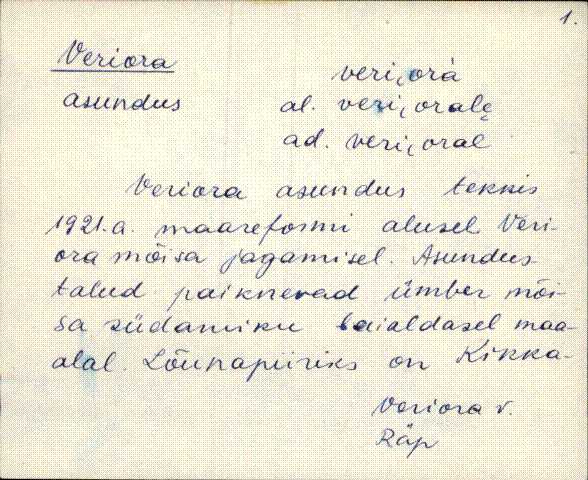 1.
Veriora
veri̮orà
asundus
al. veri̮oralȩ
ad. veri̮oral
Veriora asundus tekkis
1921.a. maareformi alusel Veri-
ora mõisa jagamisel. Asundus-
talud paiknevad ümber mõi-
sa südamiku laialdasel maa-
alal. Lõunapiiriks on Kikka-
Veriora v.
Räp